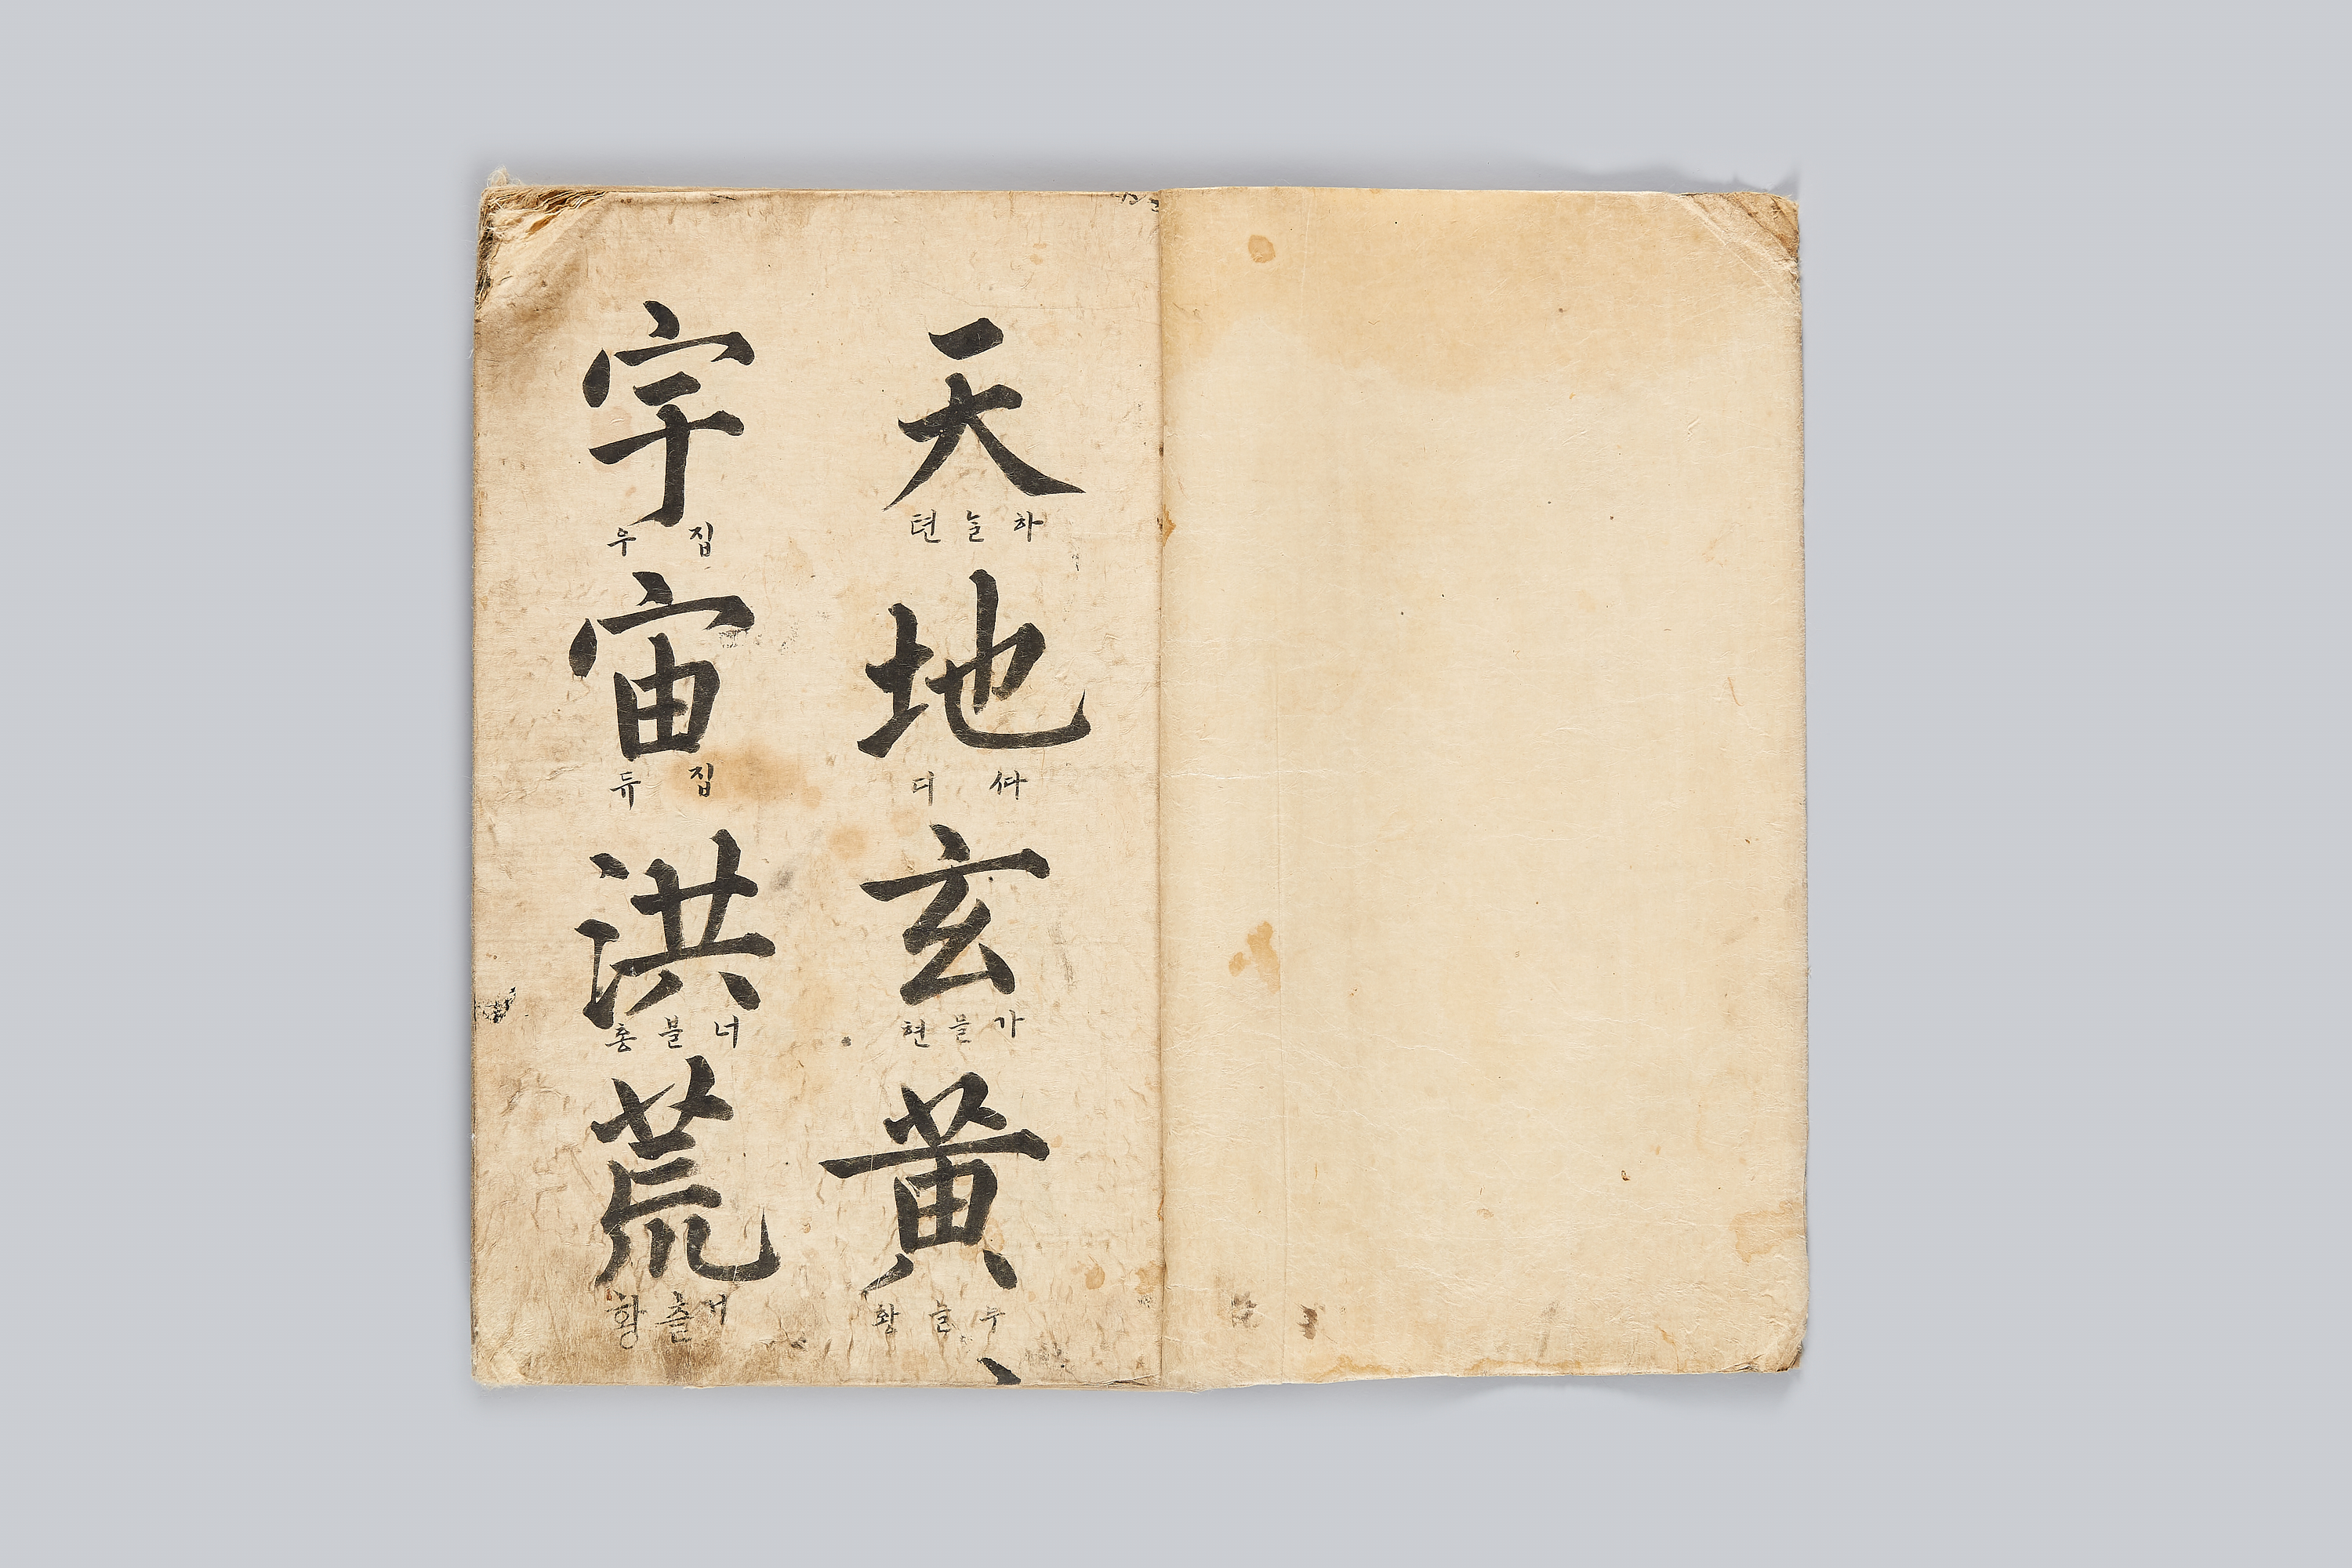 天
하늘텬
地
ᄯᅡ디
玄
가믈현
黃
누늘황
宇
집우
宙
집듀
洪
너블홍
荒
거츨황